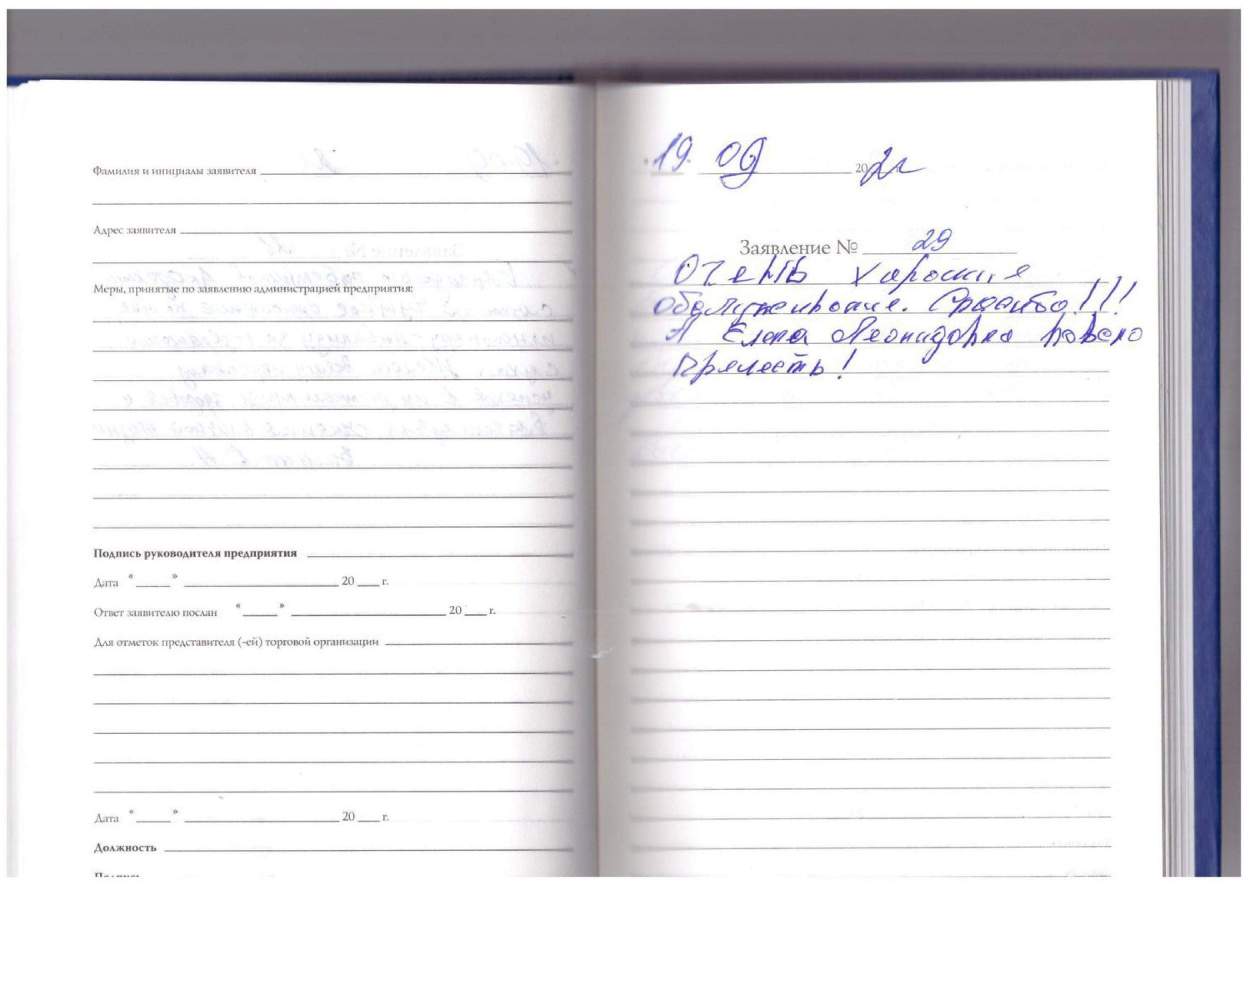 Фамилия и инициалы заявителя
Адрес заявителя
Меры, принятые по заявлению администрацией предприятия:
Подпись руководителя предприятия
Дата "_____" _____ 20___ г.
Ответ заявителю послан "_____" _____ 20___ г.
Для отметок представителя (-ей) торговой организации
Дата "_____" _____ 20___ г.
Должность
Подпись
19 09 20 2 г
Заявление № 29
Очень хорошие
обслуживание. Спасибо!!!
А Елена Леонидовна
Прелесть!